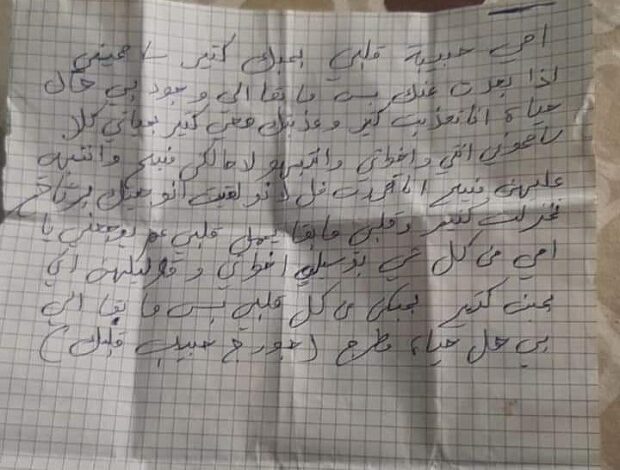 امي حبيبة قلبي بحبك كتير سامحيني
لذا بعدت عنك بس ما بقا الي وجود بي هال
حياة انا تعذبت كتير وعذبتك معي كتير بحياتي كلا
سامحوني انتي واخواتي وانتبهو لاحالكن منيح وانتبه
عليهن منيح انا قررت فل لانو لقيت انو هيك برتاح
كتير وقلبي ما بقا يحمل قلبي عم يوجعني يا
امي من كل شي بوسيلي اخواتي وقوليلهن اني
بحبن كتير بحبكن من كل قلبي بس ما بقا الي
بي هل حياة مطرح (جورج حبيب قلبك)